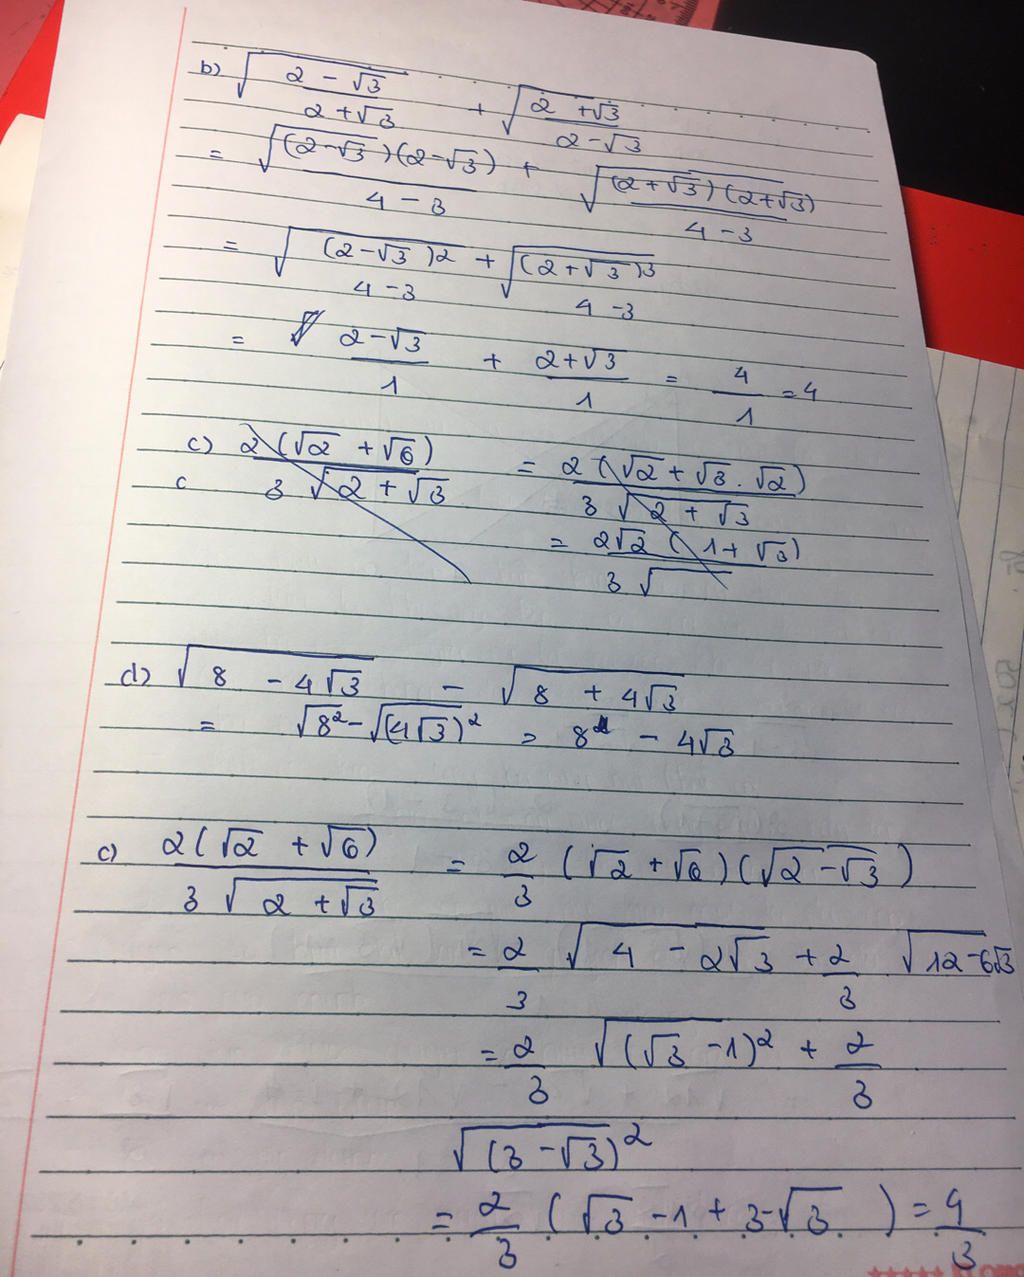 b) √((2 - √3)/(2 + √3)) + √((2 + √3)/(2 - √3))
= √((2-√3)(2-√3)/(4 - 3)) + √((2+√3)(2+√3)/(4 - 3))
= √((2-√3)²/(4-3)) + √((2+√3)³/(4-3))
= (2-√3)/1 + (2+√3)/1 = 4/1 = 4
c) 2(√2 + √6)/(3√(2+√3)) = 2(√2 + √3.√2)/(3√(2+√3))
c
= 2√2(1+√3)/(3√)
d) √(8 - 4√3) - √(8 + 4√3)
= √8² - √(4√3)² = 8 - 4√3
c) 2(√2 + √6)/(3√(2+√3)) = 2/3 (√2 + √6)(√(2-√3))
= 2/3 √(4 - 2√3) + 2/3 √(12-6√3)
= 2/3 √(√3 -1)² + 2/3
√(3-√3)²
= 2/3 (√3 -1 + 3-√3) = 4/3